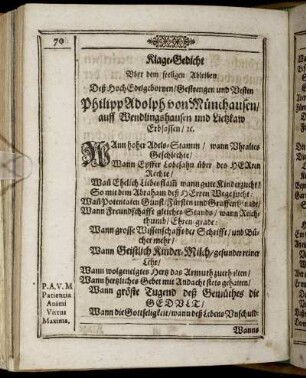 70
Klage-Gedicht
Vber dem seeligen Ableiben
Deß HochEdelgebornen/ Gestrengen und Vesten
Philipp Adolph von Münchausen/
auff Wendlingshausen und Lietzkaw
Erbsassen/ ꝛc.
WAnn hoher Adels-Stamm/ wann Vhraltes
Geschlechte/
Wann Eyffer Lobesahn über des HERren
Rechte/
Wañ Ehelich Liebesflam̃ wann gute Kinderzucht/
So mit dem Abraham deß HErren Wege sucht/
Wañ Potentaten Gunst/ Fürsten und Graffen
Wann Freundschafft gleiches Stands/ wann Reich-
thumb/ Ehren-grade:
Wann grosse Wissenschafft der Schrifft/ und Bü-
cher mehr/
Wann Geistlich Kinder-Milch/ gesunder reiner
Lehr/
Wann wolgeneigtes Hertz das Armuth zuerhalten/
Wann hertzliches Gebet mit Andacht stets gehalten/
Wann gröste Tugend deß Gemüthes die
GEDULT/
Wann die Gottseligkeit/ wann deß Lebens Vnschuld
Wanns
P. A. V. M
Patientia
Animi
Virtus
Maxima.